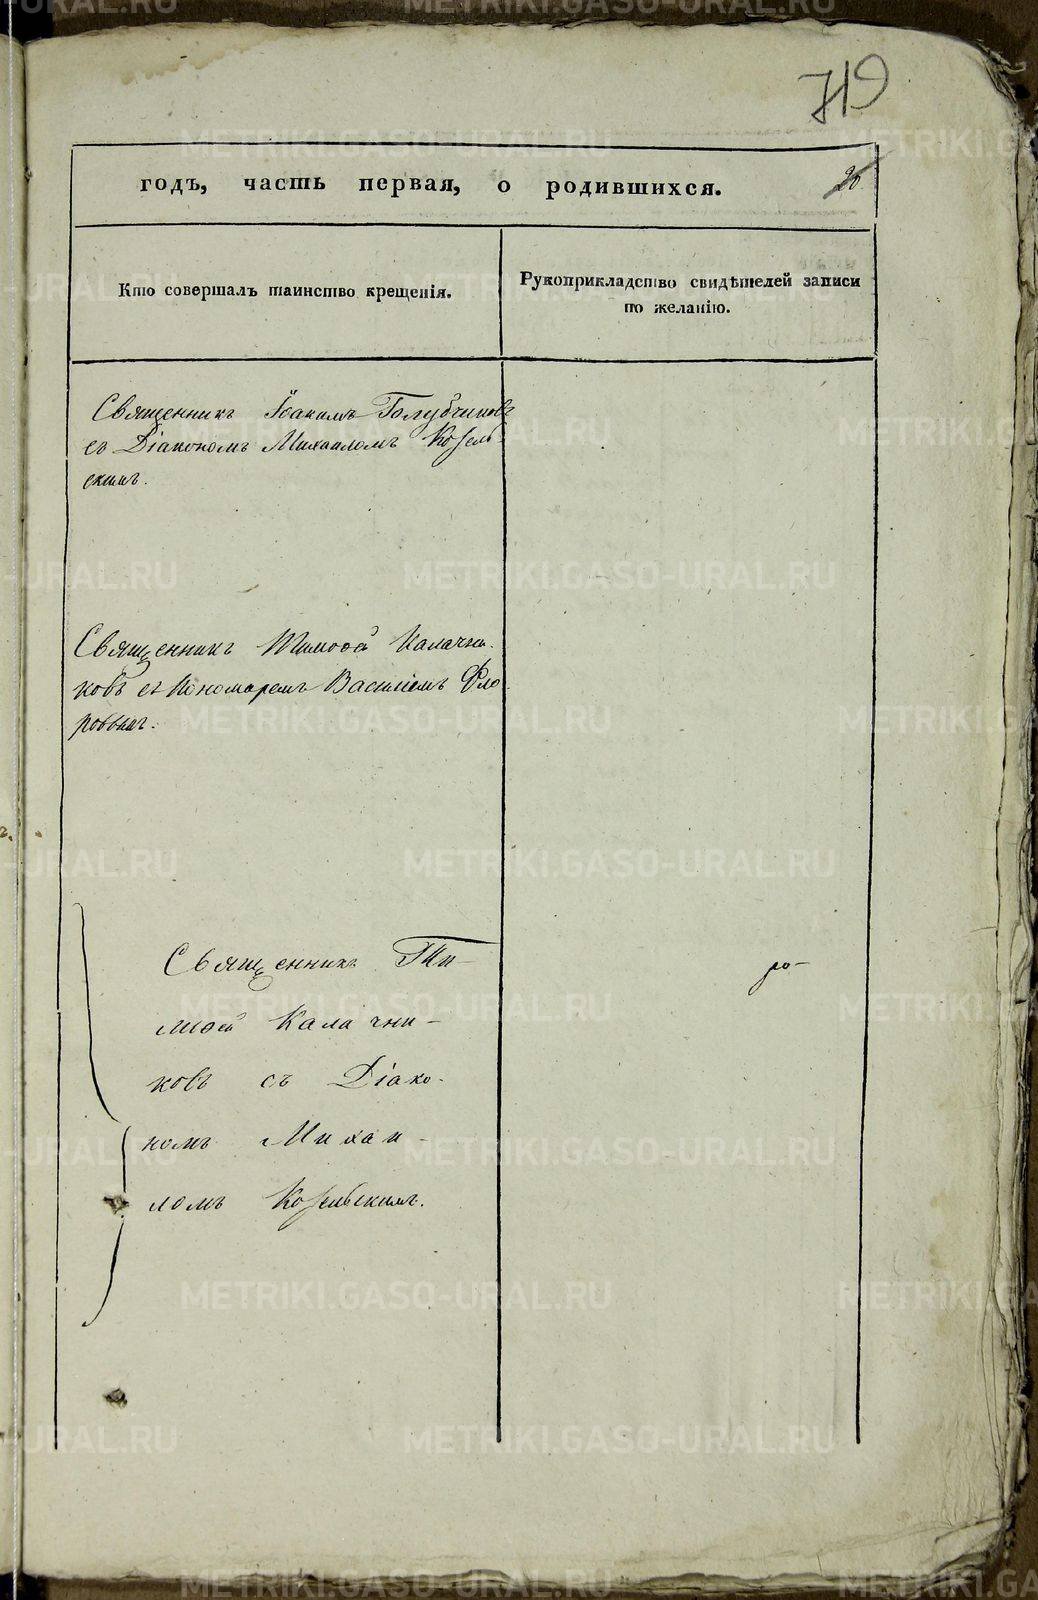 719
годъ, часть первая, о родившихся.
26
Кто совершалъ таинство крещенія.
Рукоприкладство свидѣтелей записи
по желанію.
Священникъ Іоакимъ Голубчиковъ
съ Діакономъ Михаиломъ Козель-
скимъ.
Священникъ Тимоѳей Калачни-
ковъ съ Пономаремъ Василіемъ Фло-
ровымъ.
Священникъ Ти-
моѳей Калачни-
ковъ съ Діако-
номъ Михаи-
ломъ Козельскимъ.
METRIKI.GASO-URAL.RU